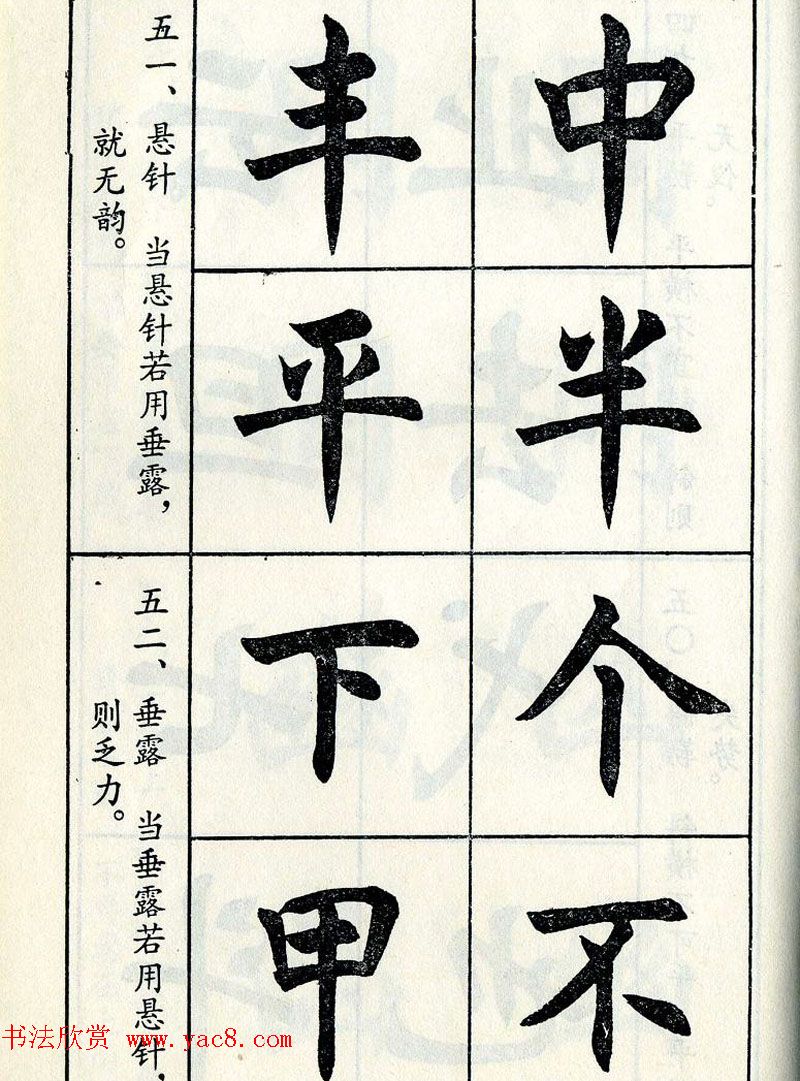 中
半
丰
平
五一、悬针 当悬针若用垂露，
就无韵。
个
不
下
甲
五二、垂露 当垂露若用悬针，
则乏力。
书法欣赏 www.yac8.com